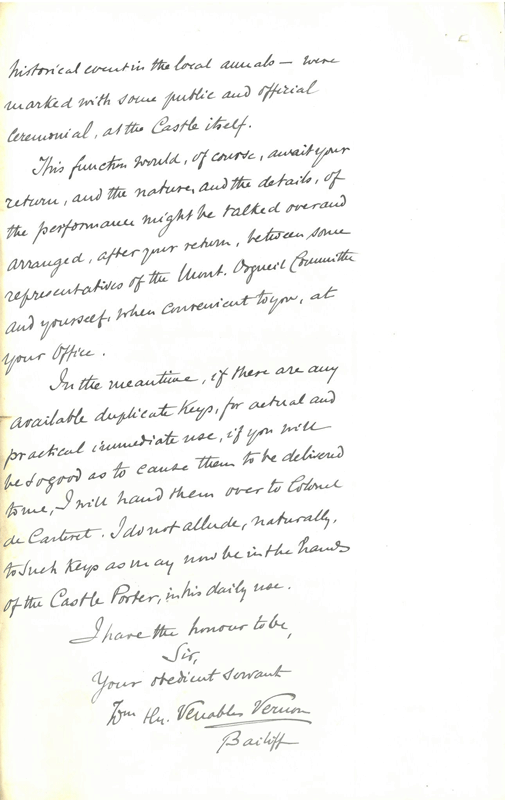 historical event in the local annals — were
marked with some public and official
Ceremonial, at the Castle itself.
This function would, of course, await your
return, and the nature, and the details, of
the performance might be talked over and
arranged, after your return, between some
representatives of the Mont. Orgueil Committee
and yourself, when convenient to you, at
your Office.
In the meantime, if there are any
available duplicate Keys, for actual and
practical immediate use, if you will
be so good as to cause them to be delivered
to me, I will hand them over to Colonel
de Carteret. I do not allude, naturally,
to such Keys as may now be in the hands
of the Castle Porter, in his daily use.
I have the honour to be,
Sir,
Your obedient servant
Wm Hy. Venables Vernon
Bailiff